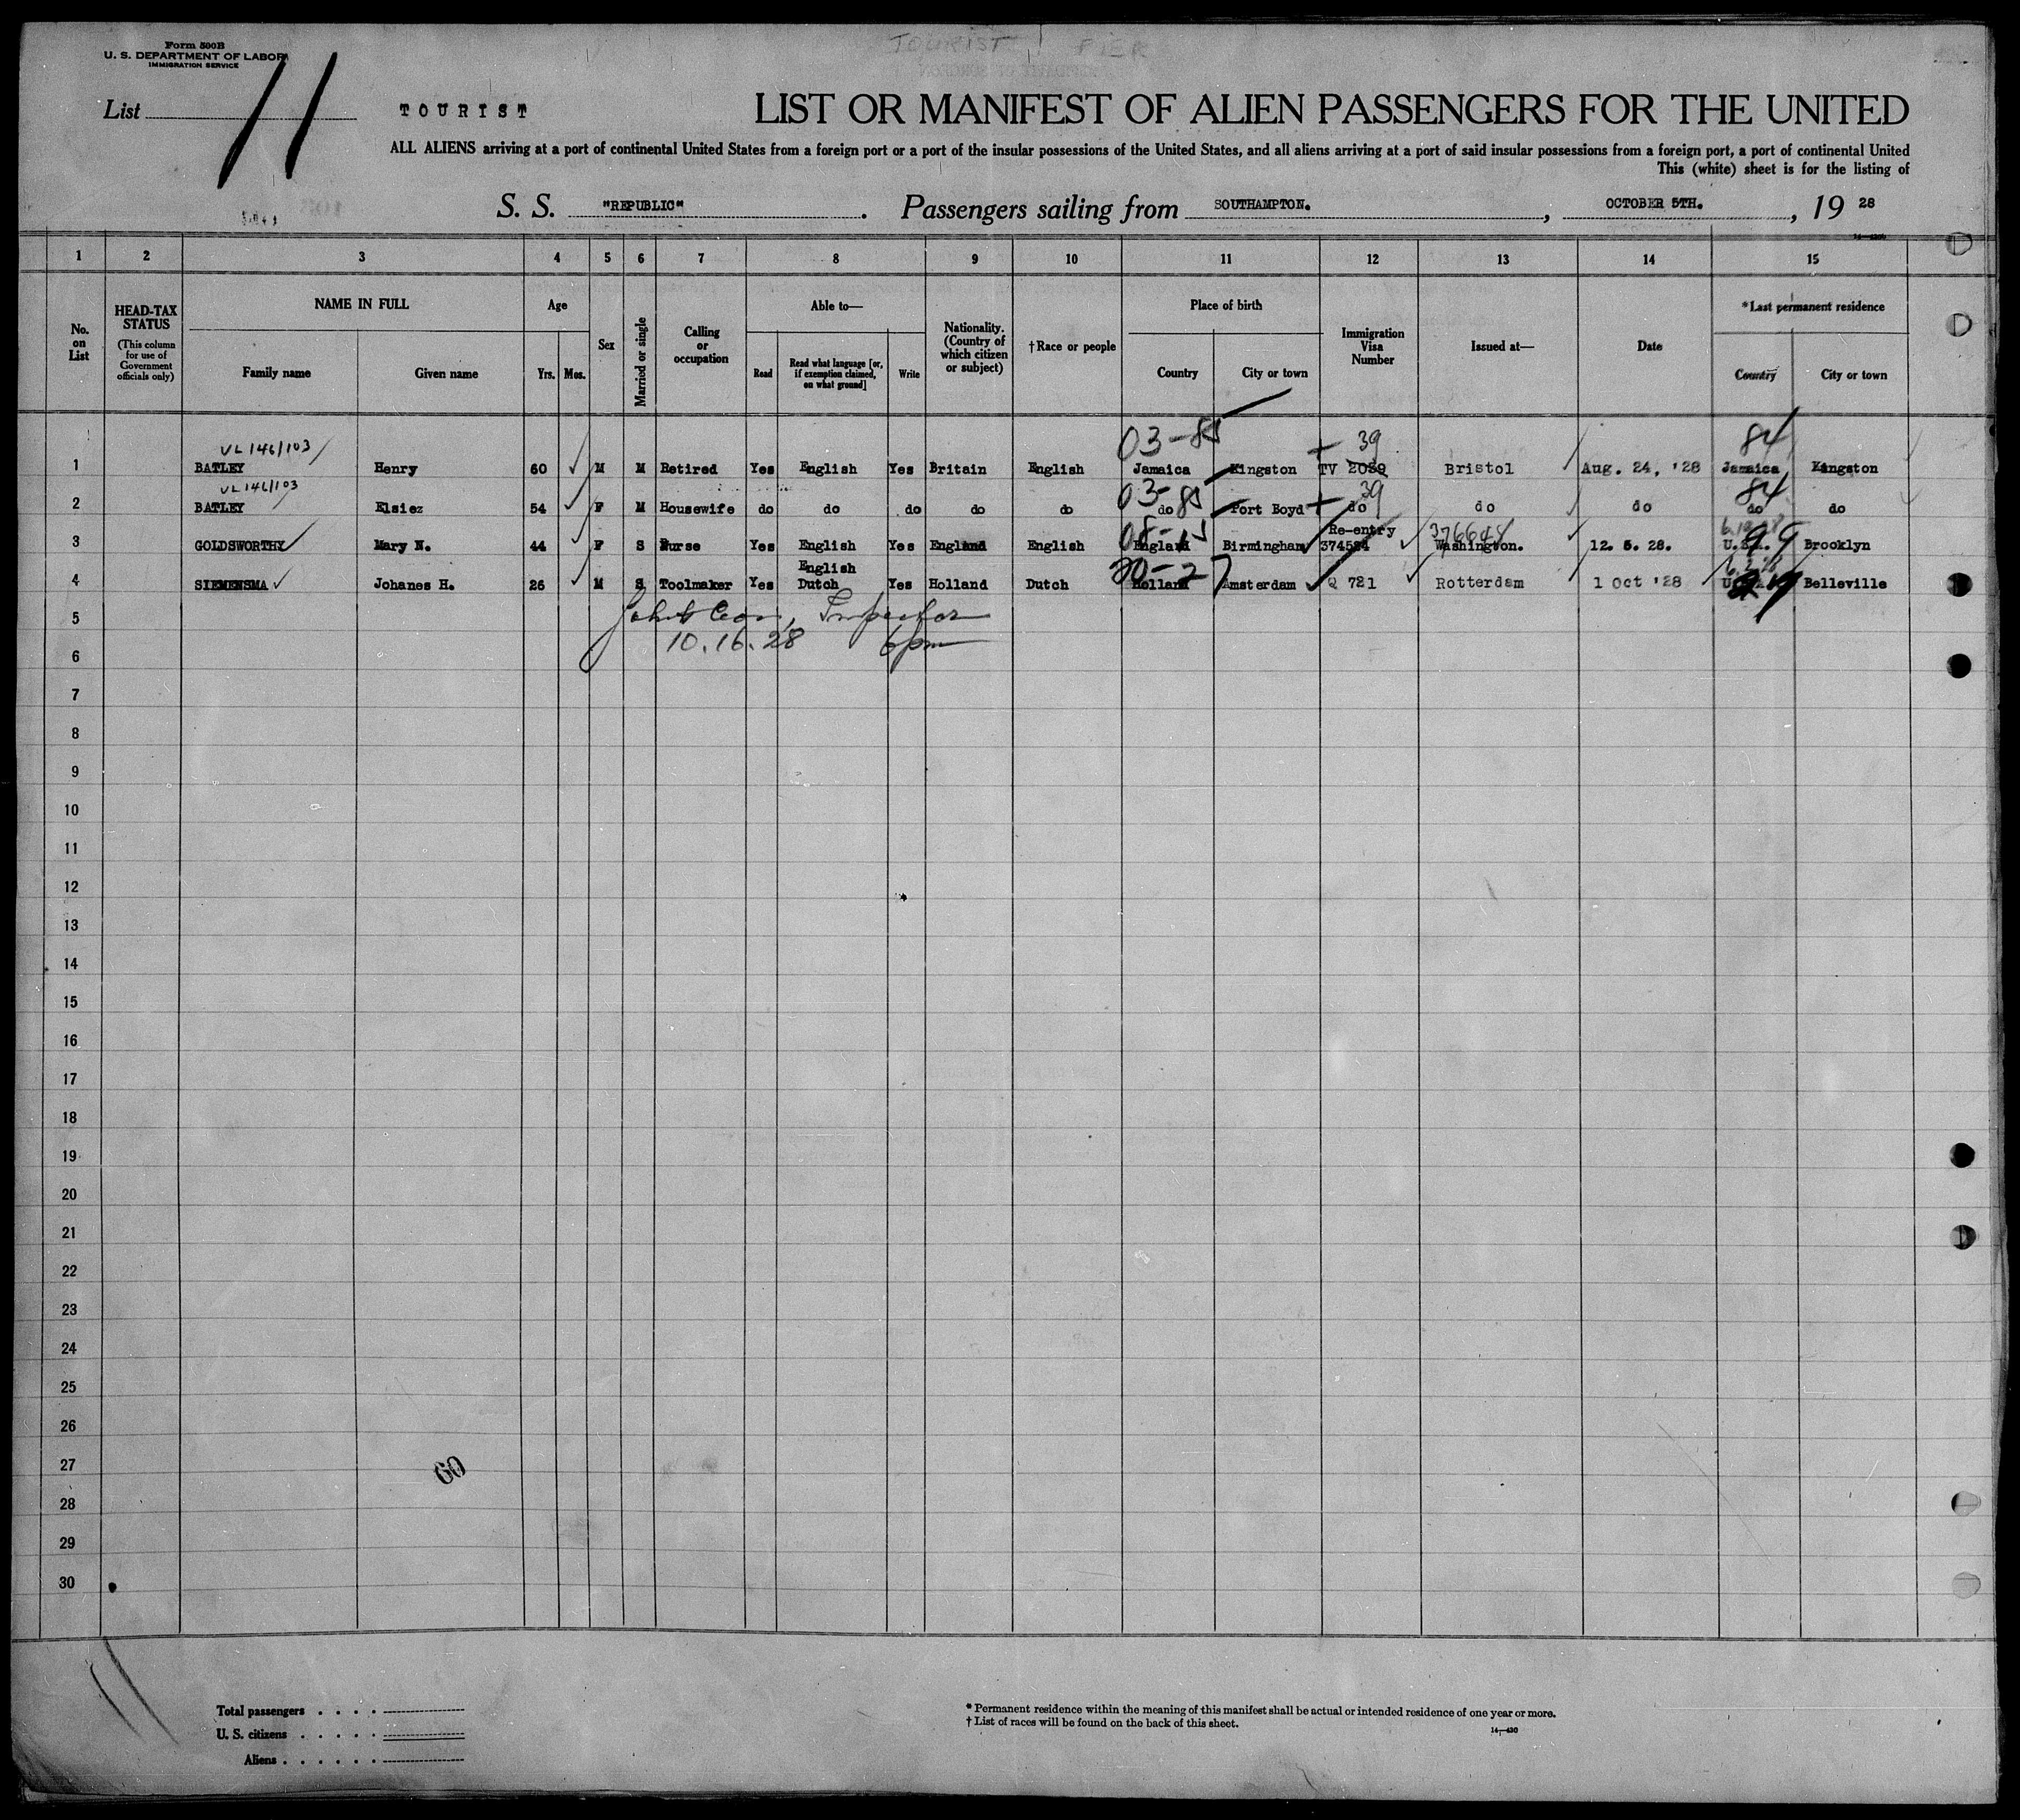 TOURIST PIER
Form 500B
U. S. DEPARTMENT OF LABOR
IMMIGRATION SERVICE
List 11
TOURIST
LIST OR MANIFEST OF ALIEN PASSENGERS FOR THE UNITED
ALL ALIENS arriving at a port of continental United States from a foreign port or a port of the insular possessions of the United States, and all aliens arriving at a port of said insular possessions from a foreign port, a port of continental United
This (white) sheet is for the listing of
S. S. "REPUBLIC". Passengers sailing from SOUTHAMPTON. , OCTOBER 5TH. , 19 28
1 2 3 4 5 6 7 8 9 10 11 12 13 14 15
No. on List
HEAD-TAX STATUS
(This column for use of Government officials only)
NAME IN FULL
Family name
Given name
Age
Yrs.
Mos.
Sex
Married or single
Calling or occupation
Able to—
Read
Read what language [or, if exemption claimed, on what ground]
Write
Nationality. (Country of which citizen or subject)
†Race or people
Place of birth
Country
City or town
Immigration Visa Number
Issued at—
Date
*Last permanent residence
Country
City or town
VL 146/103 03-85 39 84
1 BATLEY Henry 60 M M Retired Yes English Yes Britain English Jamaica Kingston TV 2039 Bristol Aug. 24, '28 Jamaica Kingston
VL 146/103 03-85 39 84
2 BATLEY Elsiez 54 F M Housewife do do do do do do Port Boyd do do do do do
08-15 Re-entry 376648 99
3 GOLDSWORTHY Mary N. 44 F S Nurse Yes English Yes England English England Birmingham 374584 Washington. 12. 5. 28. U.S.A. Brooklyn
English 20-27
4 SIEMENSMA Johanes H. 26 M S Toolmaker Yes Dutch Yes Holland Dutch Holland Amsterdam Q 721 Rotterdam 1 Oct '28 Belleville
5 Inspector
10.16.28 6pm
6
7
8
9
10
11
12
13
14
15
16
17
18
19
20
21
22
23
24
25
26
27
60
28
29
30
Total passengers
U. S. citizens
Aliens
* Permanent residence within the meaning of this manifest shall be actual or intended residence of one year or more.
† List of races will be found on the back of this sheet.
14—430